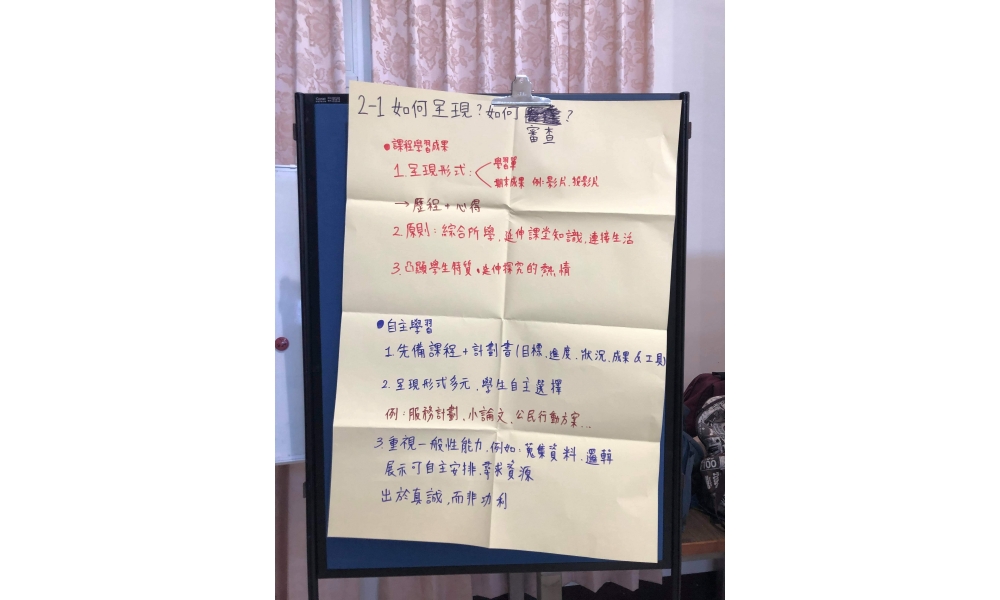 2-1 如何呈現？如何審查？
●課程學習成果
1.呈現形式：學習單
期末成果 例：影片、投影片
→歷程+心得
2.原則：綜合所學、延伸課堂知識、連接生活
3.凸顯學生特質、延伸探究的熱情
●自主學習
1.先備課程+計劃書(目標、進度、狀況、成果&工具)
2.呈現形式多元，學生自主選擇
例：服務計劃、小論文、公民行動方案...
3.重視一般性能力，例如：蒐集資料、邏輯
展示可自主安排、尋求資源
出於真誠，而非功利